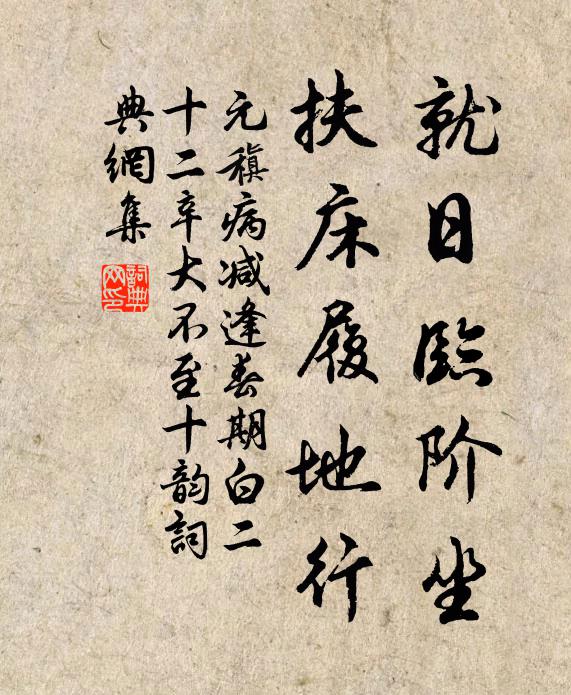 就日臨阶坐
扶床履地行
元稹病减逢春期白二
十二辛大不至十韵詞
典網集
詞典
网印